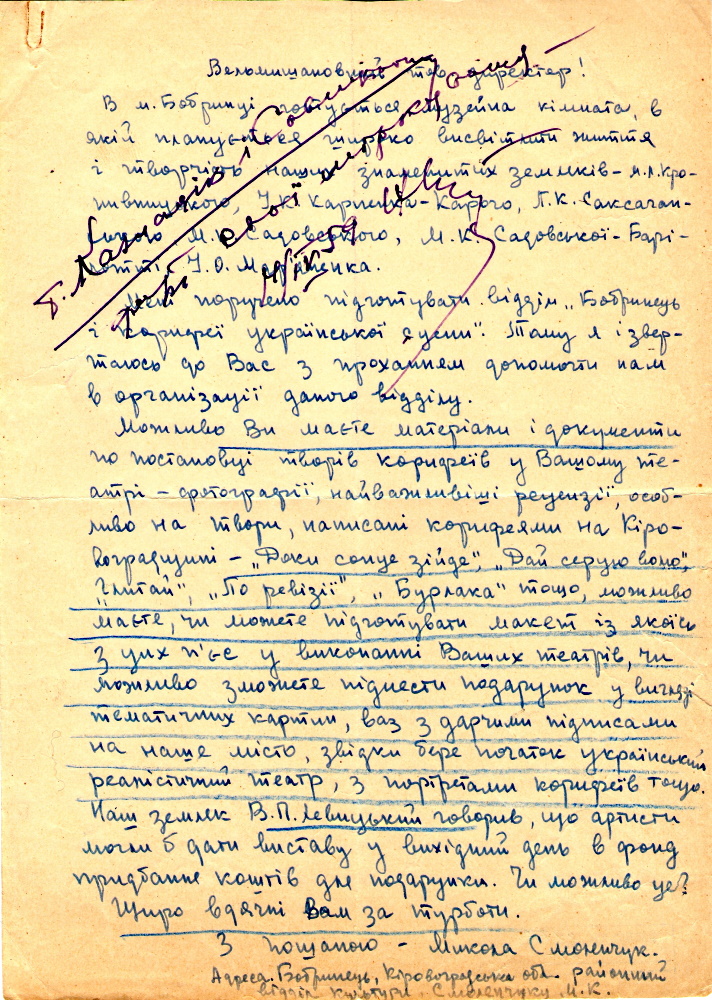 Вельмишановний тов. директор!
В м. Бобринці готується музейна кімната, в
якій планується широко висвітлити життя
і творчість наших знаменитих земляків – М.Л. Кро-
пивницького, І.К. Карпенка-Карого, П.К. Саксаган-
ського, М.К. Садовського, М.К. Садовської-Барі-
лотті, І.О. Мар'яненка.
Мені поручено підготувати відділ „Бобринець
і корифеї української сцени". Тому я і звер-
таюсь до Вас з проханням допомогти нам
в організації даного відділу.
Можливо Ви маєте матеріали і документи
по постановці творів корифеїв у Вашому те-
атрі – фотографії, найважливіші рецензії, особ-
ливо на твори, написані корифеями на Кіро-
воградщині – „Доки сонце зійде", „Дай серцю волю",
„Глитай", „По ревізії", „Бурлака" тощо, можливо
маєте, чи можете підготувати макет із якоїсь
з цих п'єс у виконанні Ваших театрів, чи
можливо зможете піднести подарунок у вигляді
тематичних картин, ваз з дарчими підписами
на наше місто, звідки бере початок український
реалістичний театр, з портретами корифеїв тощо.
Наш земляк В.П. Левицький говорив, що артисти
могли б дати виставу у вихідний день в фонд
придбання коштів для подарунки. Чи можливо це?
Щиро вдячні Вам за турботи.
З пошаною – Микола Смоленчук.
Адреса. Бобринець, Кіровоградська обл. районний
відділ культури, Смоленчуку М.К.